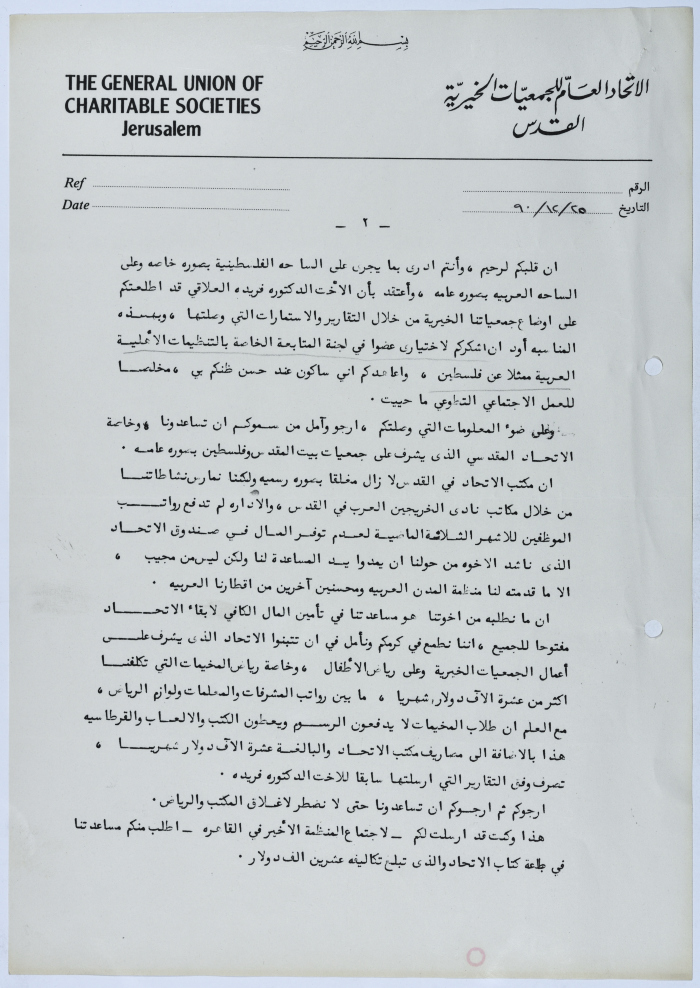 بسم الله الرحمن الرحيم
THE GENERAL UNION OF
CHARITABLE SOCIETIES
Jerusalem
الاتحاد العام للجمعيات الخيرية
القدس
Ref
Date
الرقم
التاريخ ٩٠/١٢/٢٥
- ٢ -
ان قلبكم لرحيم ، وأنتم ادرى بما يجرى على الساحه الفلسطينية بصوره خاصه وعلى
الساحه العربيه بصوره عامه ، وأعتقد بأن الأخت الدكتوره فريده العلاقي قد اطلعتكم
على اوضاع جمعياتنا الخيرية من خلال التقارير والاستمارات التي وصلتها ، وبهذه
المناسبه أود ان اشكركم لاختيارى عضوا في لجنة المتابعة الخاصة بالتنظيمات الأهلية
العربية ممثلا عن فلسطين ، واعاهدكم اني ساكون عند حسن ظنكم بي ، مخلصا
للعمل الاجتماعي التطوعي ما حييت .
وعلى ضوء المعلومات التي وصلتكم ، ارجو وآمل من سموكم ان تساعدونا ، وخاصة
الاتحاد المقدسي الذى يشرف على جمعيات بيت المقدس وفلسطين بصوره عامه .
ان مكتب الاتحاد في القدس لا زال مغلقا بصوره رسميه ولكننا نمارس نشاطاتنا
من خلال مكاتب نادى الخريجين العرب في القدس ، والاداره لم تدفع رواتب
الموظفين للاشهر الثلاثة الماضية لعدم توفر المال في صندوق الاتحاد
الذى ناشد الاخوه من حولنا ان يمدوا يد المساعدة لنا ولكن ليس من مجيب ،
الا ما قدمته لنا منظمة المدن العربيه ومحسنين آخرين من اقطارنا العربيه .
ان ما نطلبه من اخوتنا هو مساعدتنا في تأمين المال الكافي لابقاء الاتحاد
مفتوحا للجميع ، اننا نطمع في كرمكم ونأمل في ان تتبنوا الاتحاد الذى يشرف على
أعمال الجمعيات الخيرية وعلى رياض الأطفال ، وخاصة رياض المخيمات التي تكلفنا
اكثر من عشرة الآف دولار شهريا ، ما بين رواتب المشرفات والمعلمات ولوازم الرياض ،
مع العلم ان طلاب المخيمات لا يدفعون الرسوم ويعطون الكتب والالعاب والقرطاسيه
هذا بالاضافة الى مصاريف مكتب الاتحاد والبالغة عشرة الآف دولار شهريا ،
تصرف وفق التقارير التي ارسلتها سابقا للاخت الدكتوره فريده .
ارجوكم ثم ارجوكم ان تساعدونا حتى لا نضطر لاغلاق المكتب والرياض .
هذا وكنت قد ارسلت لكم - لاجتماع المنظمة الأخير في القاهره - اطلب منكم مساعدتنا
في طباعة كتاب الاتحاد والذى تبلغ تكاليفه عشرين الف دولار .